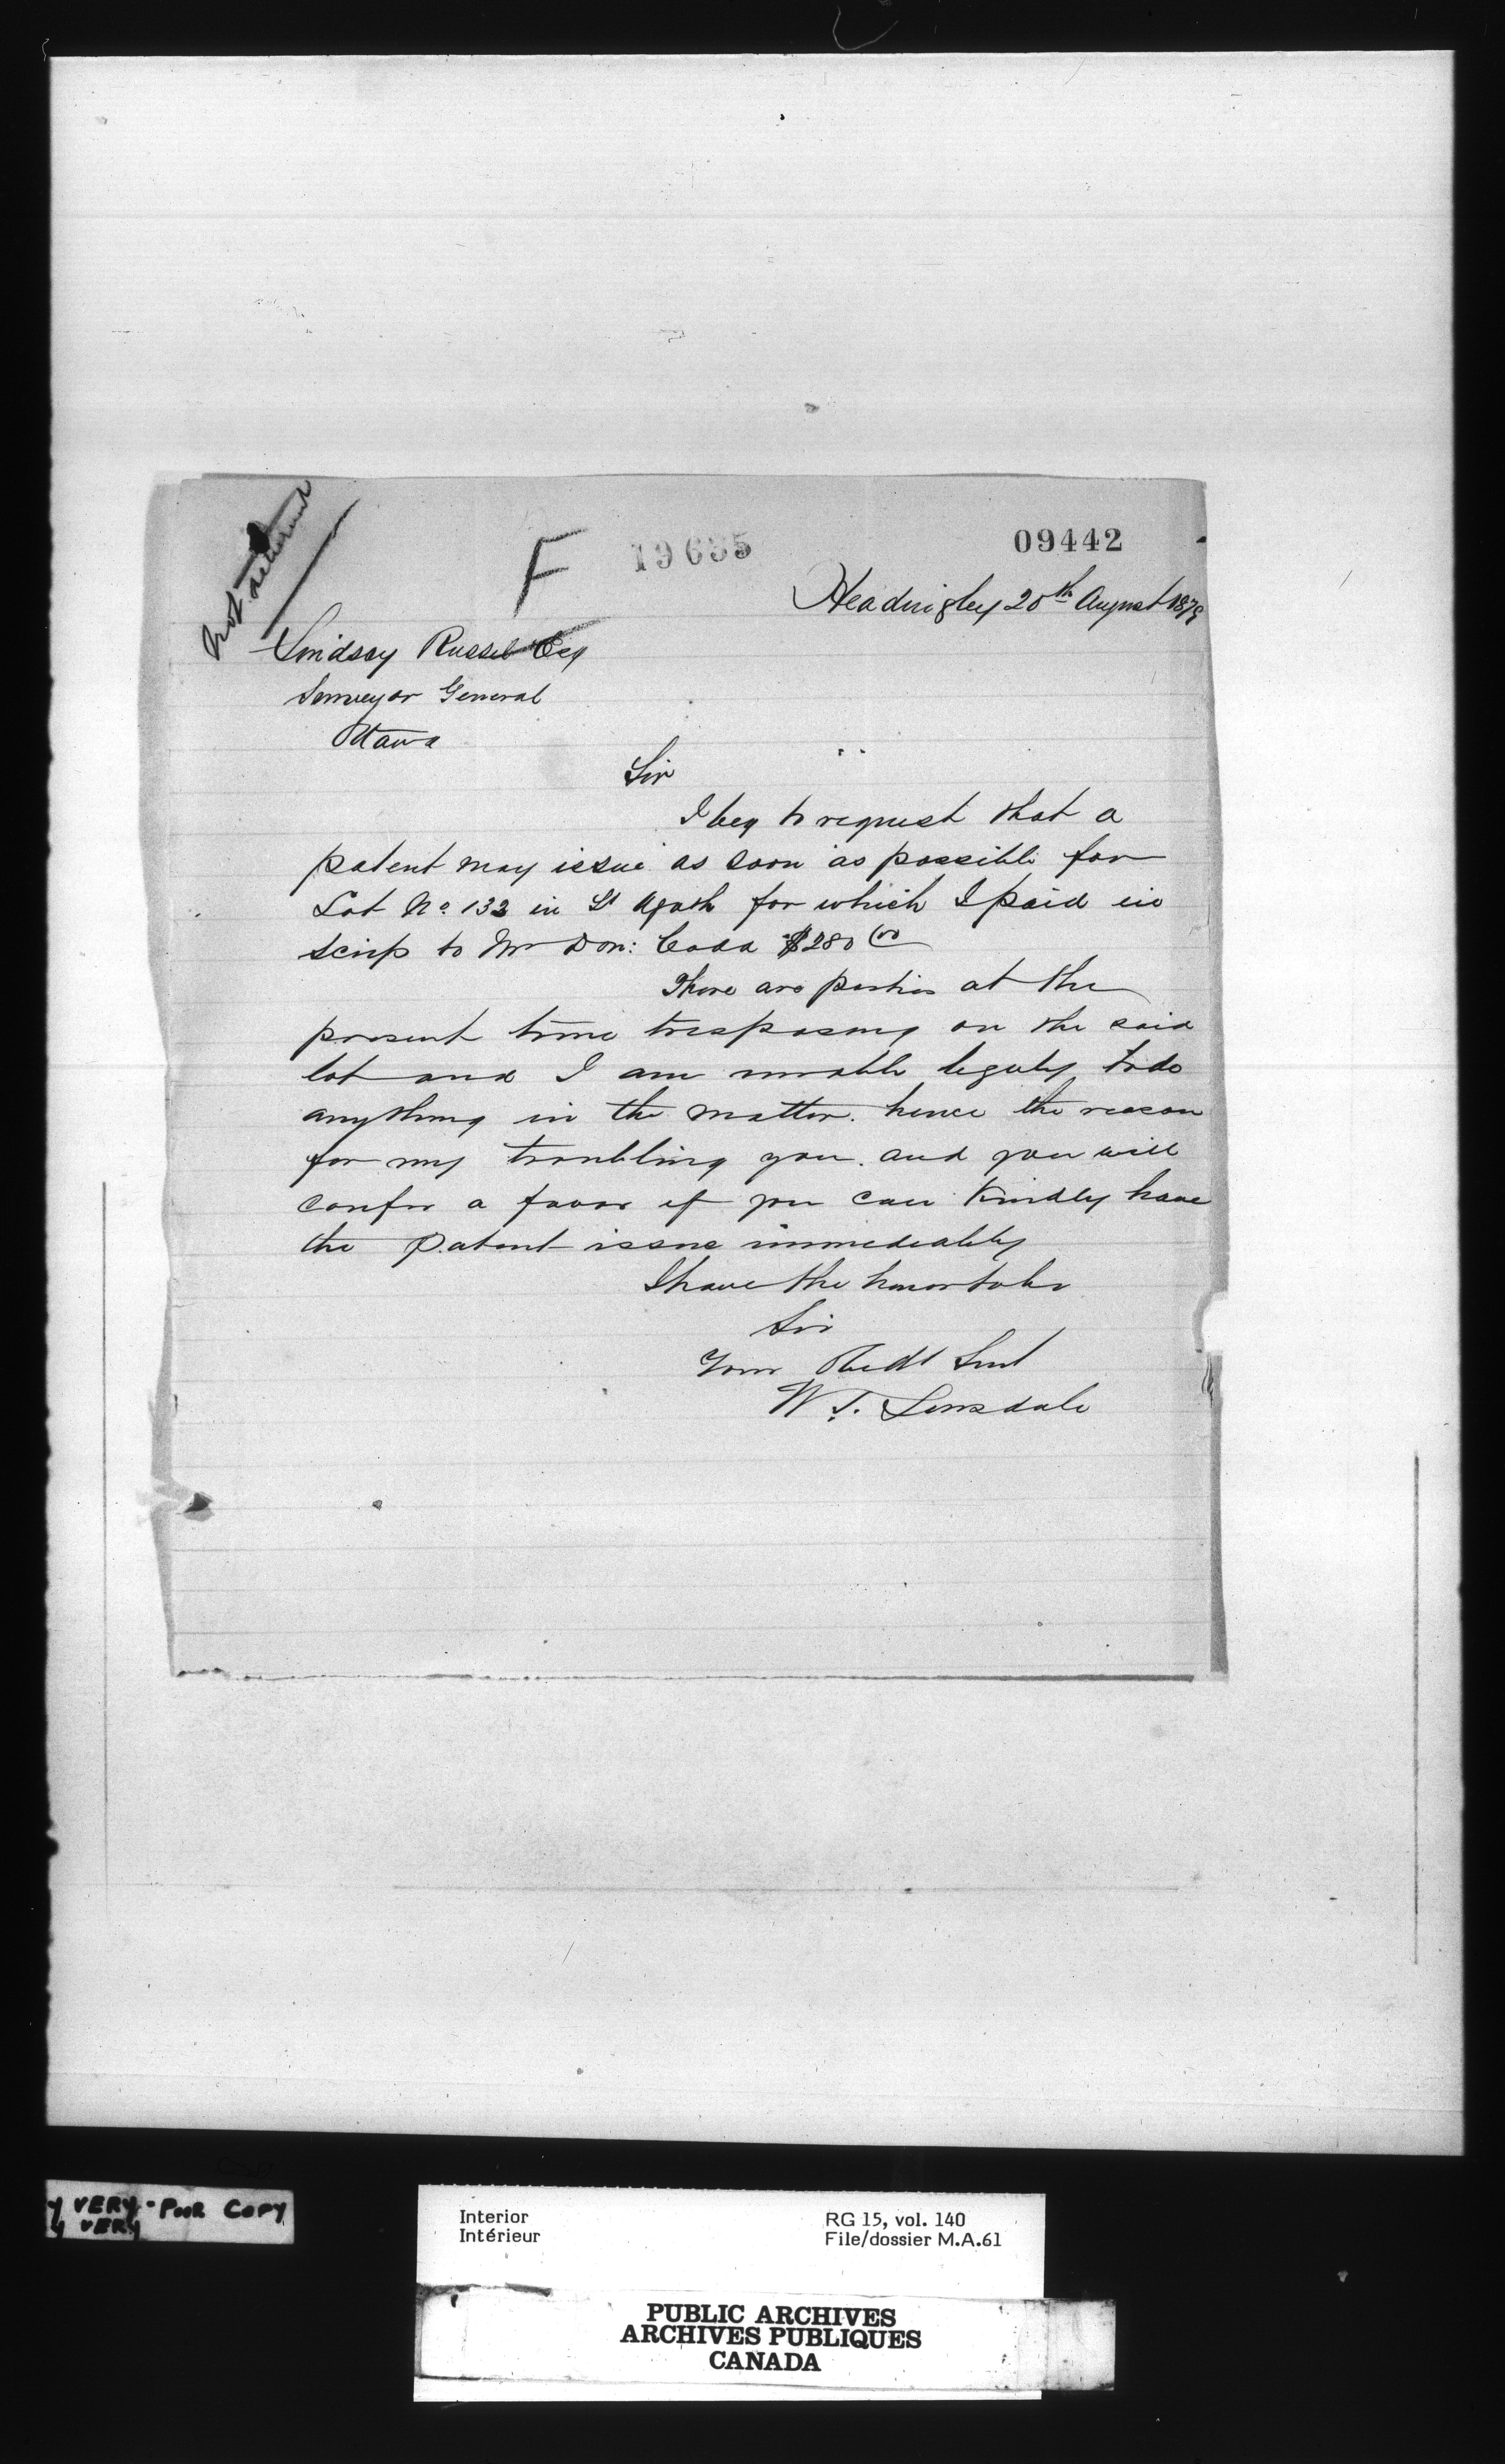 F 19635 09442
Headingley 20th August 1879
Lindsay Russel Esq
Surveyor General
Ottawa
Sir
I beg to request that a
patent may issue as soon as possible for
Lot No. 132 in St Agath for which I paid in
scrip to Mr Don: Codd $280 00
There are parties at the
present time trespassing on the said
lot and I am unable legaly to do
anything in the matter. hence the reason
for my troubling you. and you will
confer a favor if you can Kindly have
the Patent issue immediately
I have the honor to be
Sir
Your Obedt Svnt
W. T. Lonsdale
VERY-POOR COPY
VERY
Interior
Intérieur
RG 15, vol. 140
File/dossier M.A.61
PUBLIC ARCHIVES
ARCHIVES PUBLIQUES
CANADA